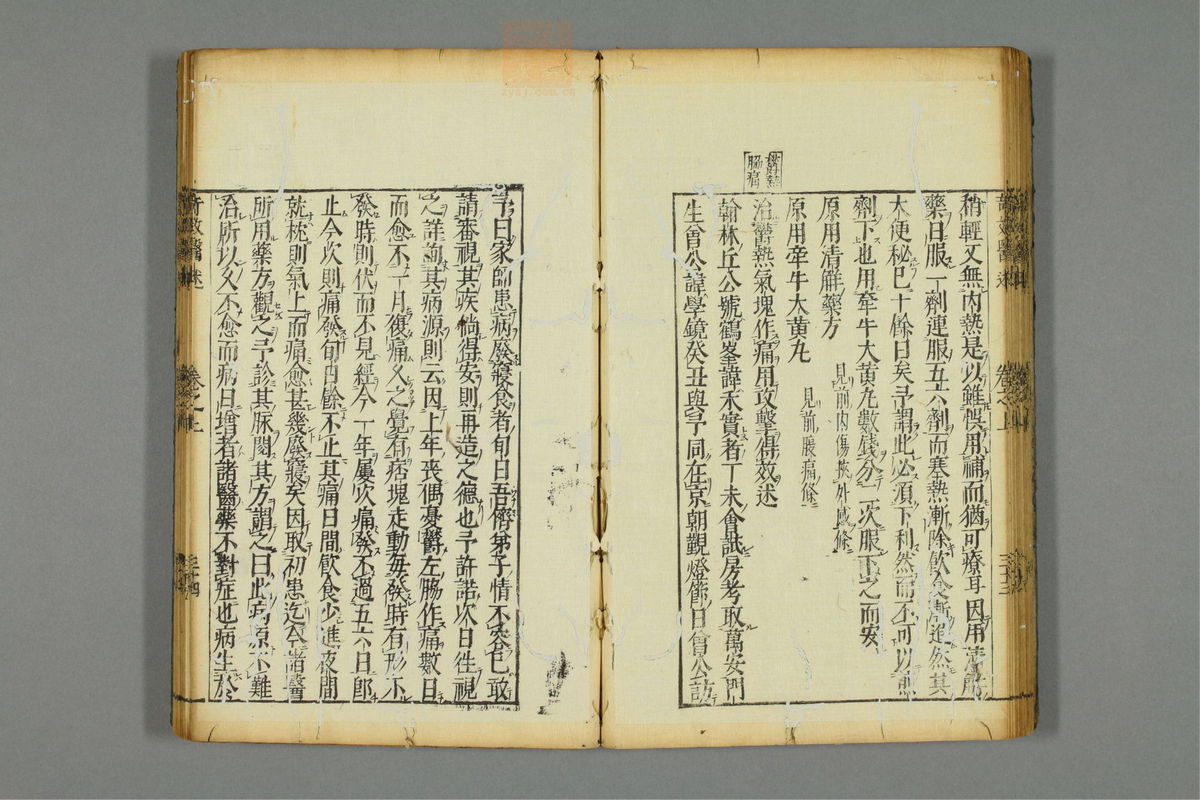 稍輕又無內熱是以雖悞用補而猶可療耳因用清解
藥日服一劑連服五六劑而寒熱漸除飲食漸進然其
大便秘已十餘日矣予謂此必須下利然而不可以煎
劑下也用牽牛大黃丸數錢分二次服下之而安
原用清解藥方 見前內傷挾外感條
原用牽牛大黃丸 見前腹痛條
鬱熱
脇痛
治鬱熱氣塊作痛用攻擊得效述
翰林丘公號鶴峯諱禾實者丁未會試房考取萬安門
生曾公諱學鏡癸丑與予同在京朝覲燈節日曾公訪
予曰家師患病廢寢食者旬日吾儕弟子情不容已敢
請審視其疾倘得安則再造之德也予許諾次日往視
之詳詢其病源則云因上年喪偶憂鬱左脇作痛數日
而愈不一月復痛久之覺有痞塊走動每發時有形不
發時則伏而不見經今一年屢次痛發不過五六日即
止今次則痛發旬日餘不止其痛日間飲食少進夜間
就枕則氣上而痛愈甚幾廢寢矣因取初患迄今諸醫
所用藥方觀之予診其脉閱其方謂之曰此病原不難
治所以久不愈而病日增者諸醫藥不對症也病生於
奇效醫述
卷之上
三十三
奇效醫述
卷之上
三十四
zysj.com.cn